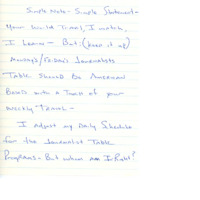 Simple Note - Simple Statement -
Your World Travel, I watch,
I Learn - But: (keep it up)
Monday's/Friday's Journalists
Table Should Be American
Based with a Touch of your
weekly Travel -
I adjust my Daily Schedule
for the Journalist Table
Programs - But whom am I Right?